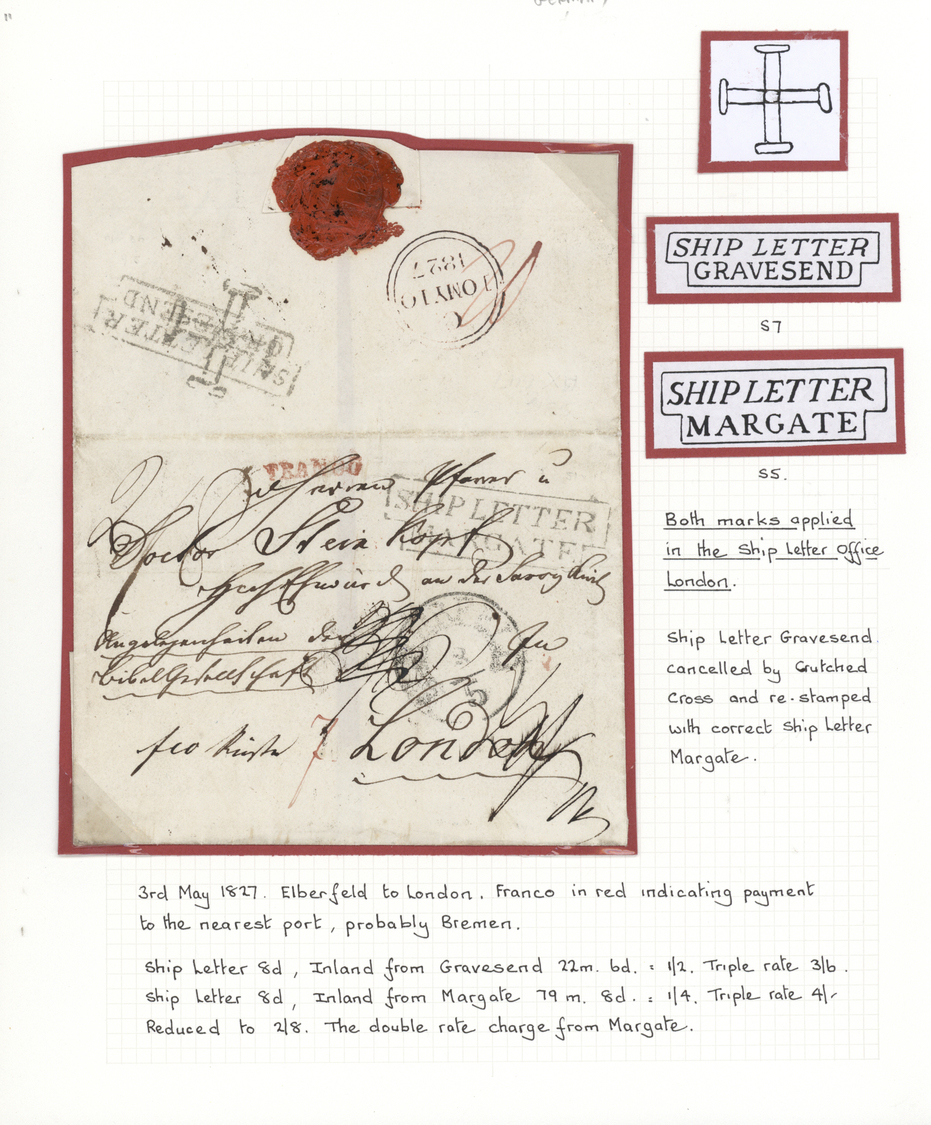 SHIP LETTER
GRAVESEND
S7
SHIP LETTER
MARGATE
S5.
Both marks applied
in the Ship Letter Office
London.
Ship Letter Gravesend
cancelled by Crutched
Cross and re-stamped
with correct Ship Letter
Margate.
1827
SHIP LETTER
GRAVESEND
FRANCO
Herrn Pfarrer u
SHIP LETTER
MARGATE
Doctor Steinkopf
an der Savoy Kirch
Angelegenheiten der
Bibelgesellschaft
zu
7 London
3rd May 1827. Elberfeld to London. Franco in red indicating payment
to the nearest port, probably Bremen.
Ship Letter 8d, Inland from Gravesend 22m. 6d. = 1/2. Triple rate 3/6.
Ship Letter 8d, Inland from Margate 79 m. 8d. = 1/4. Triple rate 4/-
Reduced to 2/8. The double rate charge from Margate.